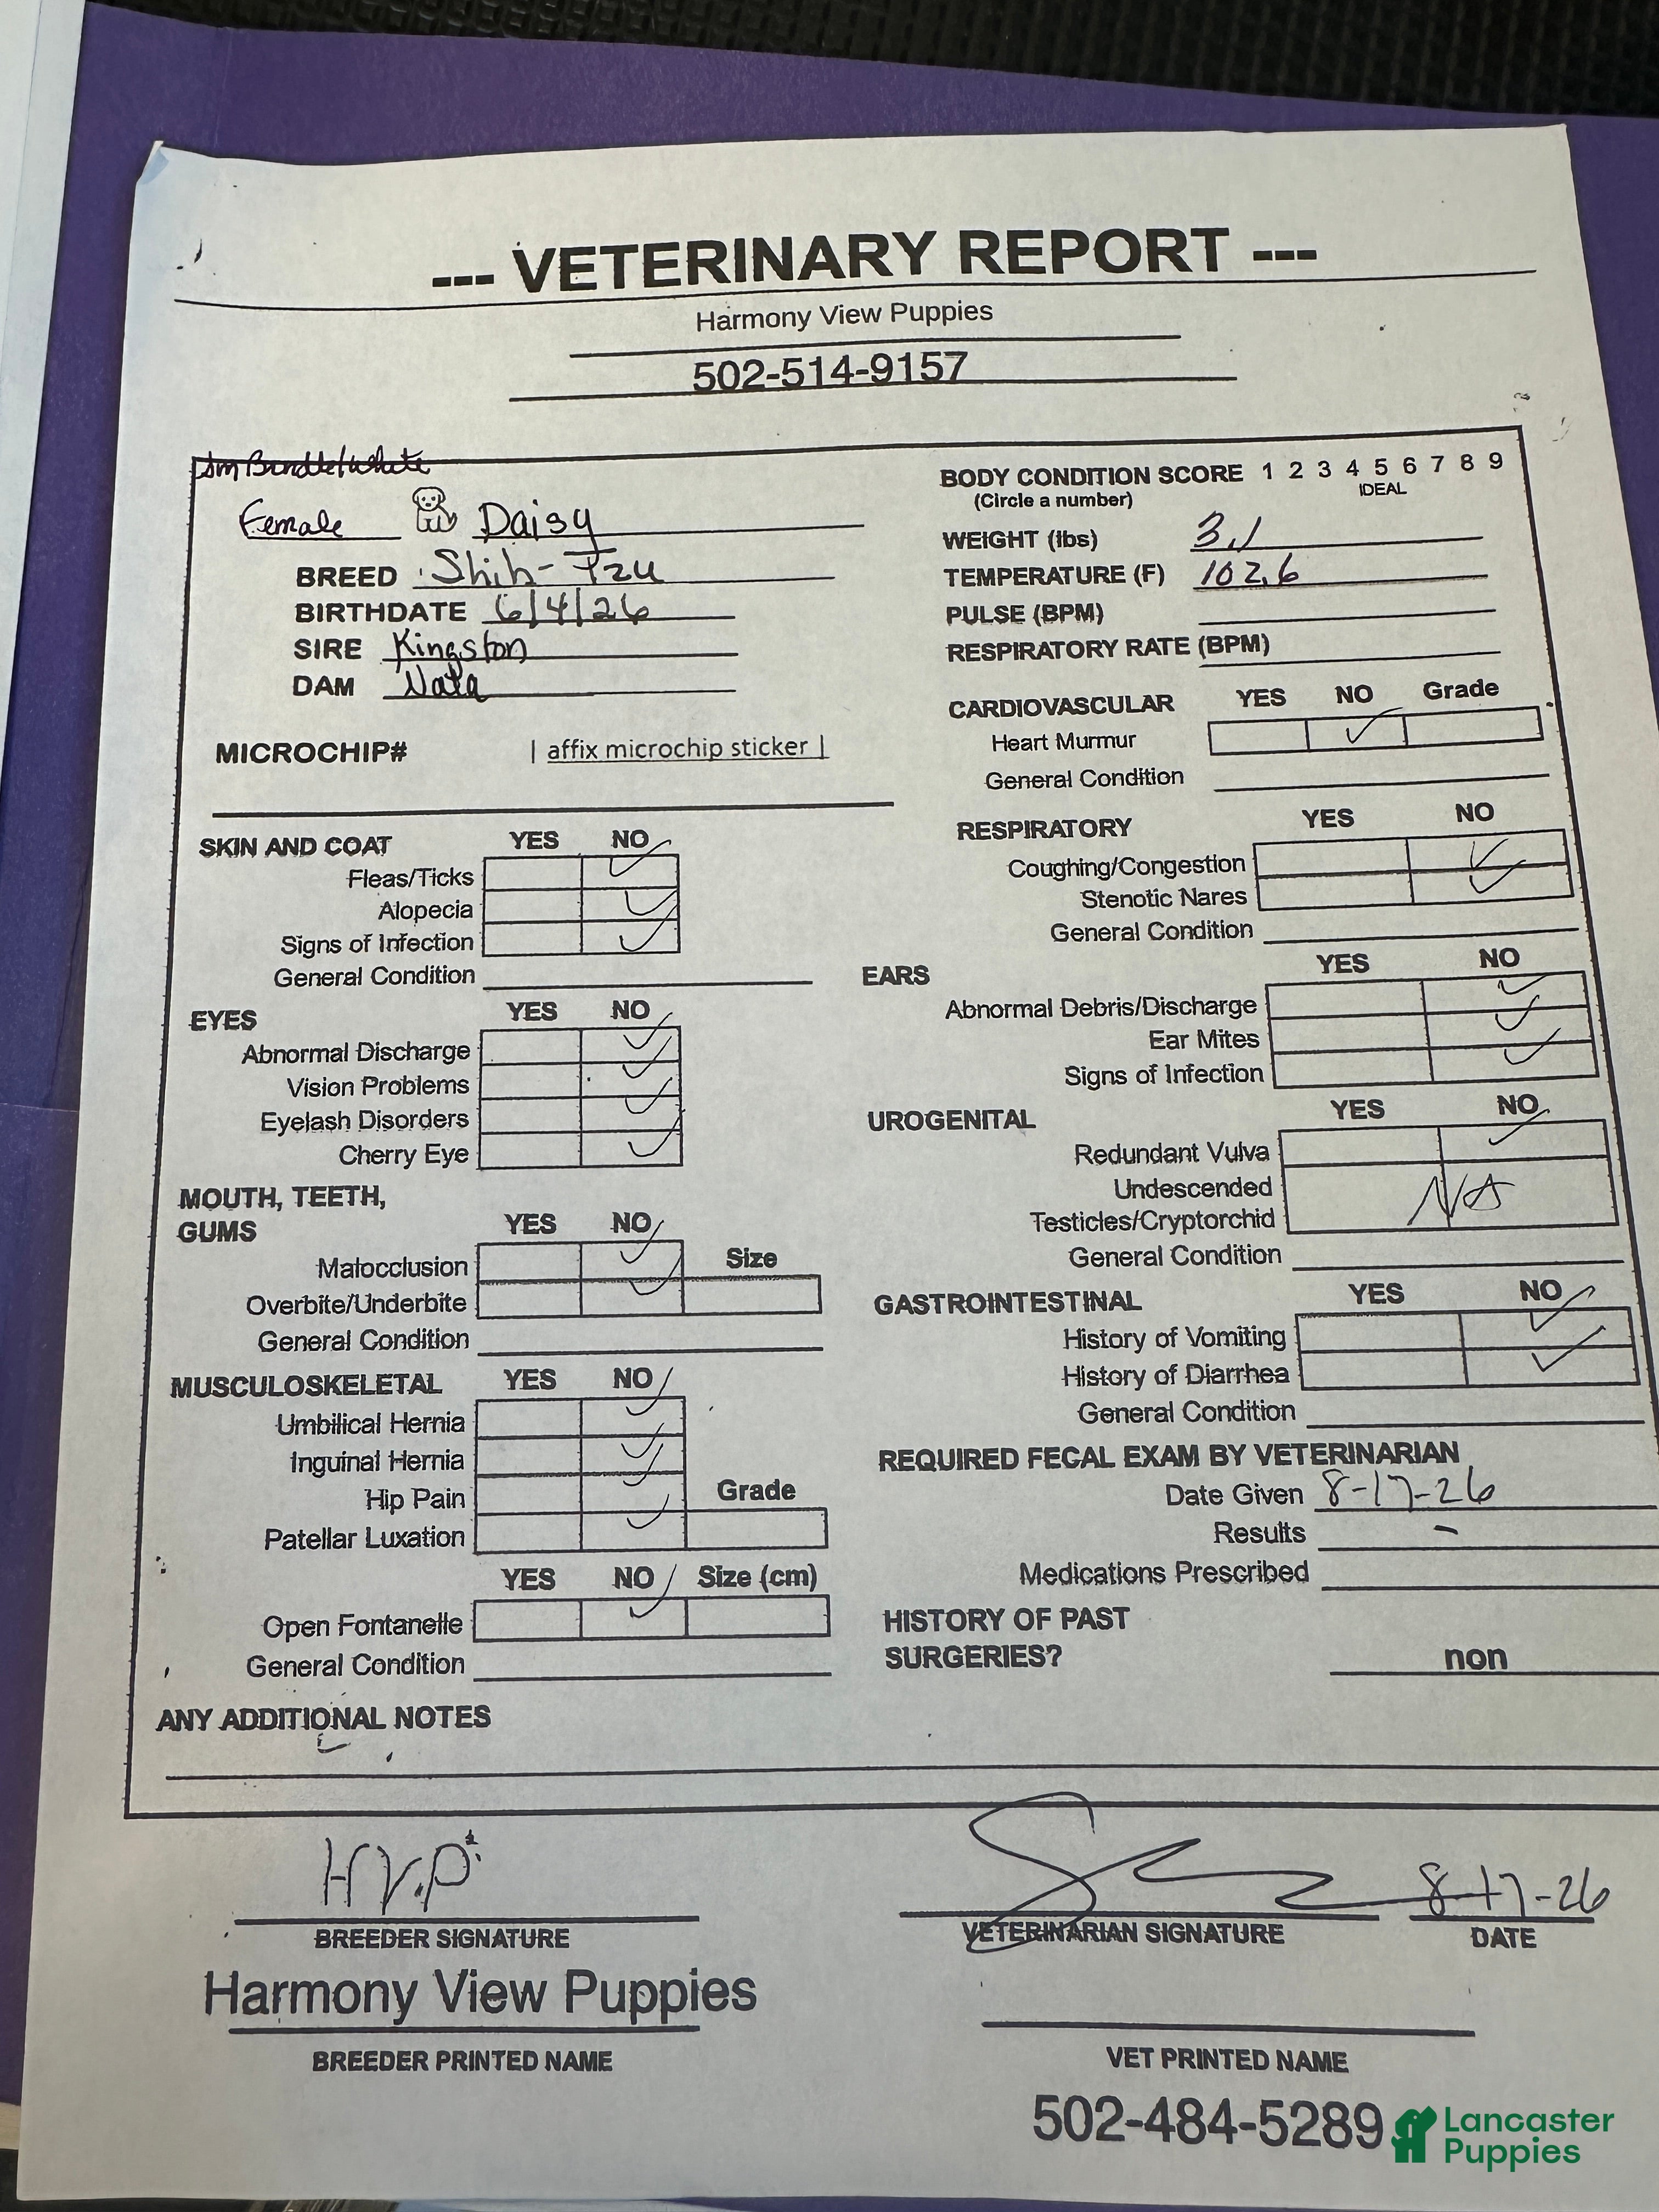 --- VETERINARY REPORT ---
Harmony View Puppies
502-514-9157
Sm Brindle/white
Female Daisy
BREED Shih-Tzu
BIRTHDATE 6/4/26
SIRE Kingston
DAM Nala
MICROCHIP# | affix microchip sticker |
SKIN AND COAT YES NO
Fleas/Ticks ✓
Alopecia ✓
Signs of Infection ✓
General Condition
EYES YES NO
Abnormal Discharge ✓
Vision Problems ✓
Eyelash Disorders ✓
Cherry Eye ✓
MOUTH, TEETH,
GUMS YES NO
Malocclusion ✓ Size
Overbite/Underbite ✓
General Condition
MUSCULOSKELETAL YES NO
Umbilical Hernia ✓
Inguinal Hernia ✓
Hip Pain ✓ Grade
Patellar Luxation ✓
YES NO Size (cm)
Open Fontanelle ✓
General Condition
BODY CONDITION SCORE 1 2 3 4 5 6 7 8 9
(Circle a number) IDEAL
WEIGHT (lbs) 3.1
TEMPERATURE (F) 102.6
PULSE (BPM)
RESPIRATORY RATE (BPM)
CARDIOVASCULAR YES NO Grade
Heart Murmur ✓
General Condition
RESPIRATORY YES NO
Coughing/Congestion ✓
Stenotic Nares ✓
General Condition
EARS YES NO
Abnormal Debris/Discharge ✓
Ear Mites ✓
Signs of Infection ✓
UROGENITAL YES NO
Redundant Vulva ✓
Undescended
Testicles/Cryptorchid NA
General Condition
GASTROINTESTINAL YES NO
History of Vomiting ✓
History of Diarrhea ✓
General Condition
REQUIRED FECAL EXAM BY VETERINARIAN
Date Given 8-17-26
Results -
Medications Prescribed
HISTORY OF PAST
SURGERIES? non
ANY ADDITIONAL NOTES
H.V.P.
BREEDER SIGNATURE
Harmony View Puppies
BREEDER PRINTED NAME
8-17-26
VETERINARIAN SIGNATURE DATE
VET PRINTED NAME
502-484-5289
Lancaster
Puppies